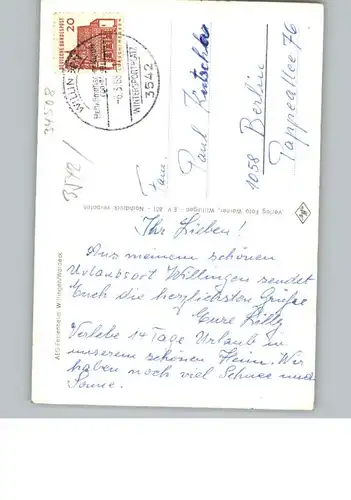 DEUTSCHE BUNDESPOST
20
WILLINGEN
-6.3.68
WINTERSPORTPLATZ
3542
34508
3542/
Fam.
Paul Kutschke
1058 Berlin
Pappelallee 76
Verlag Foto Werner, Willingen, E.V. 601 - Nachdruck verboten
AEG Ferienheim Willingen/Waldeck
Ihr Lieben!
Aus meinem schönen
Urlaubsort Willingen sendet
Euch die herzlichsten Grüße
Eure
Verlebe 14 Tage Urlaub in
unserem schönen Heim. Wir
haben noch viel Schnee und
Sonne.